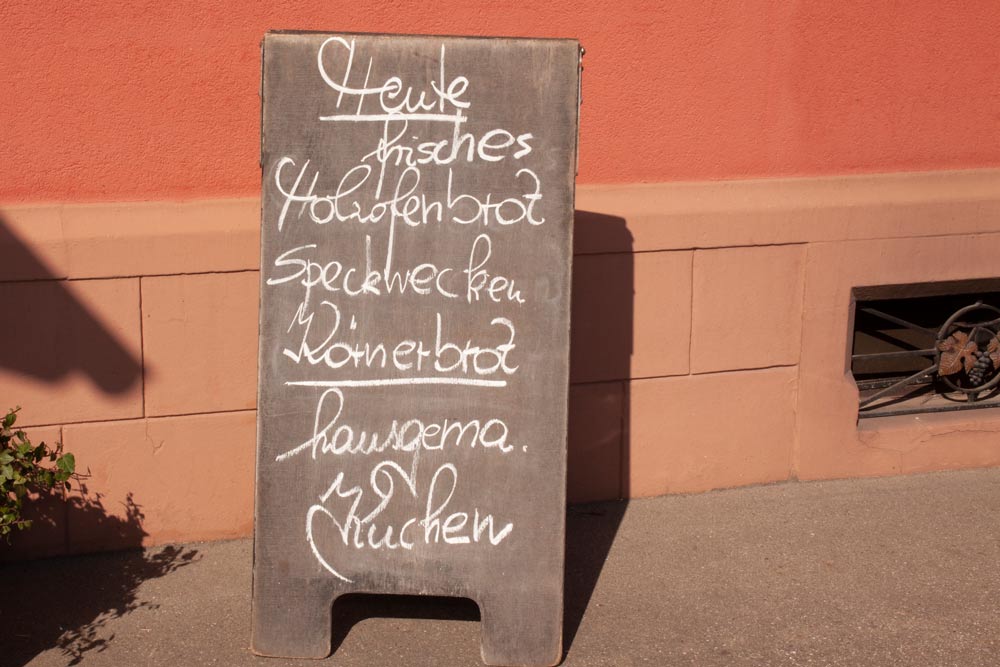 Heute
frisches
Holzofenbrot
Speckwecken
Körnerbrot
hausgema.
Kuchen